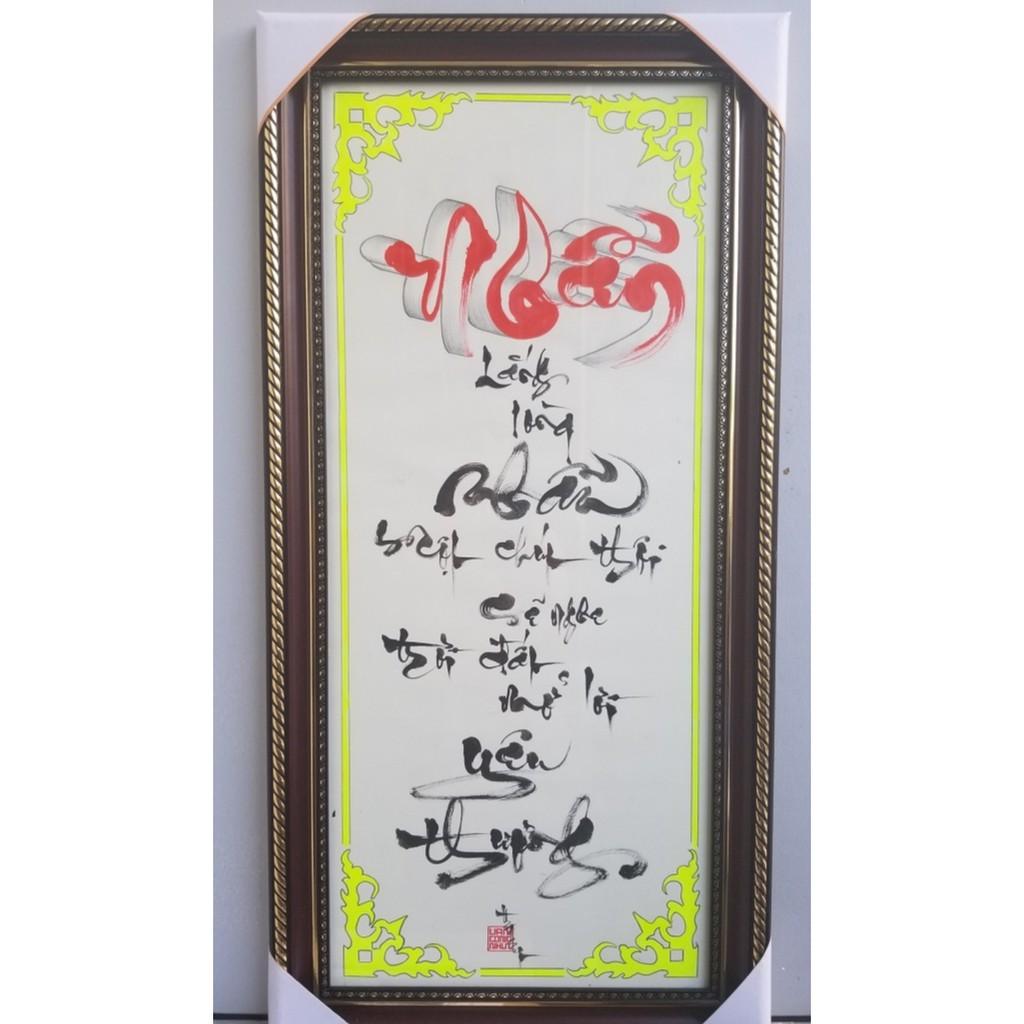 Nhẫn
Lắng
lòng
nhẫn
một chút thôi
Sẽ nghe
trời đất
nhỏ lời
yêu
thương
VĂN
CÔNG
NHỰT